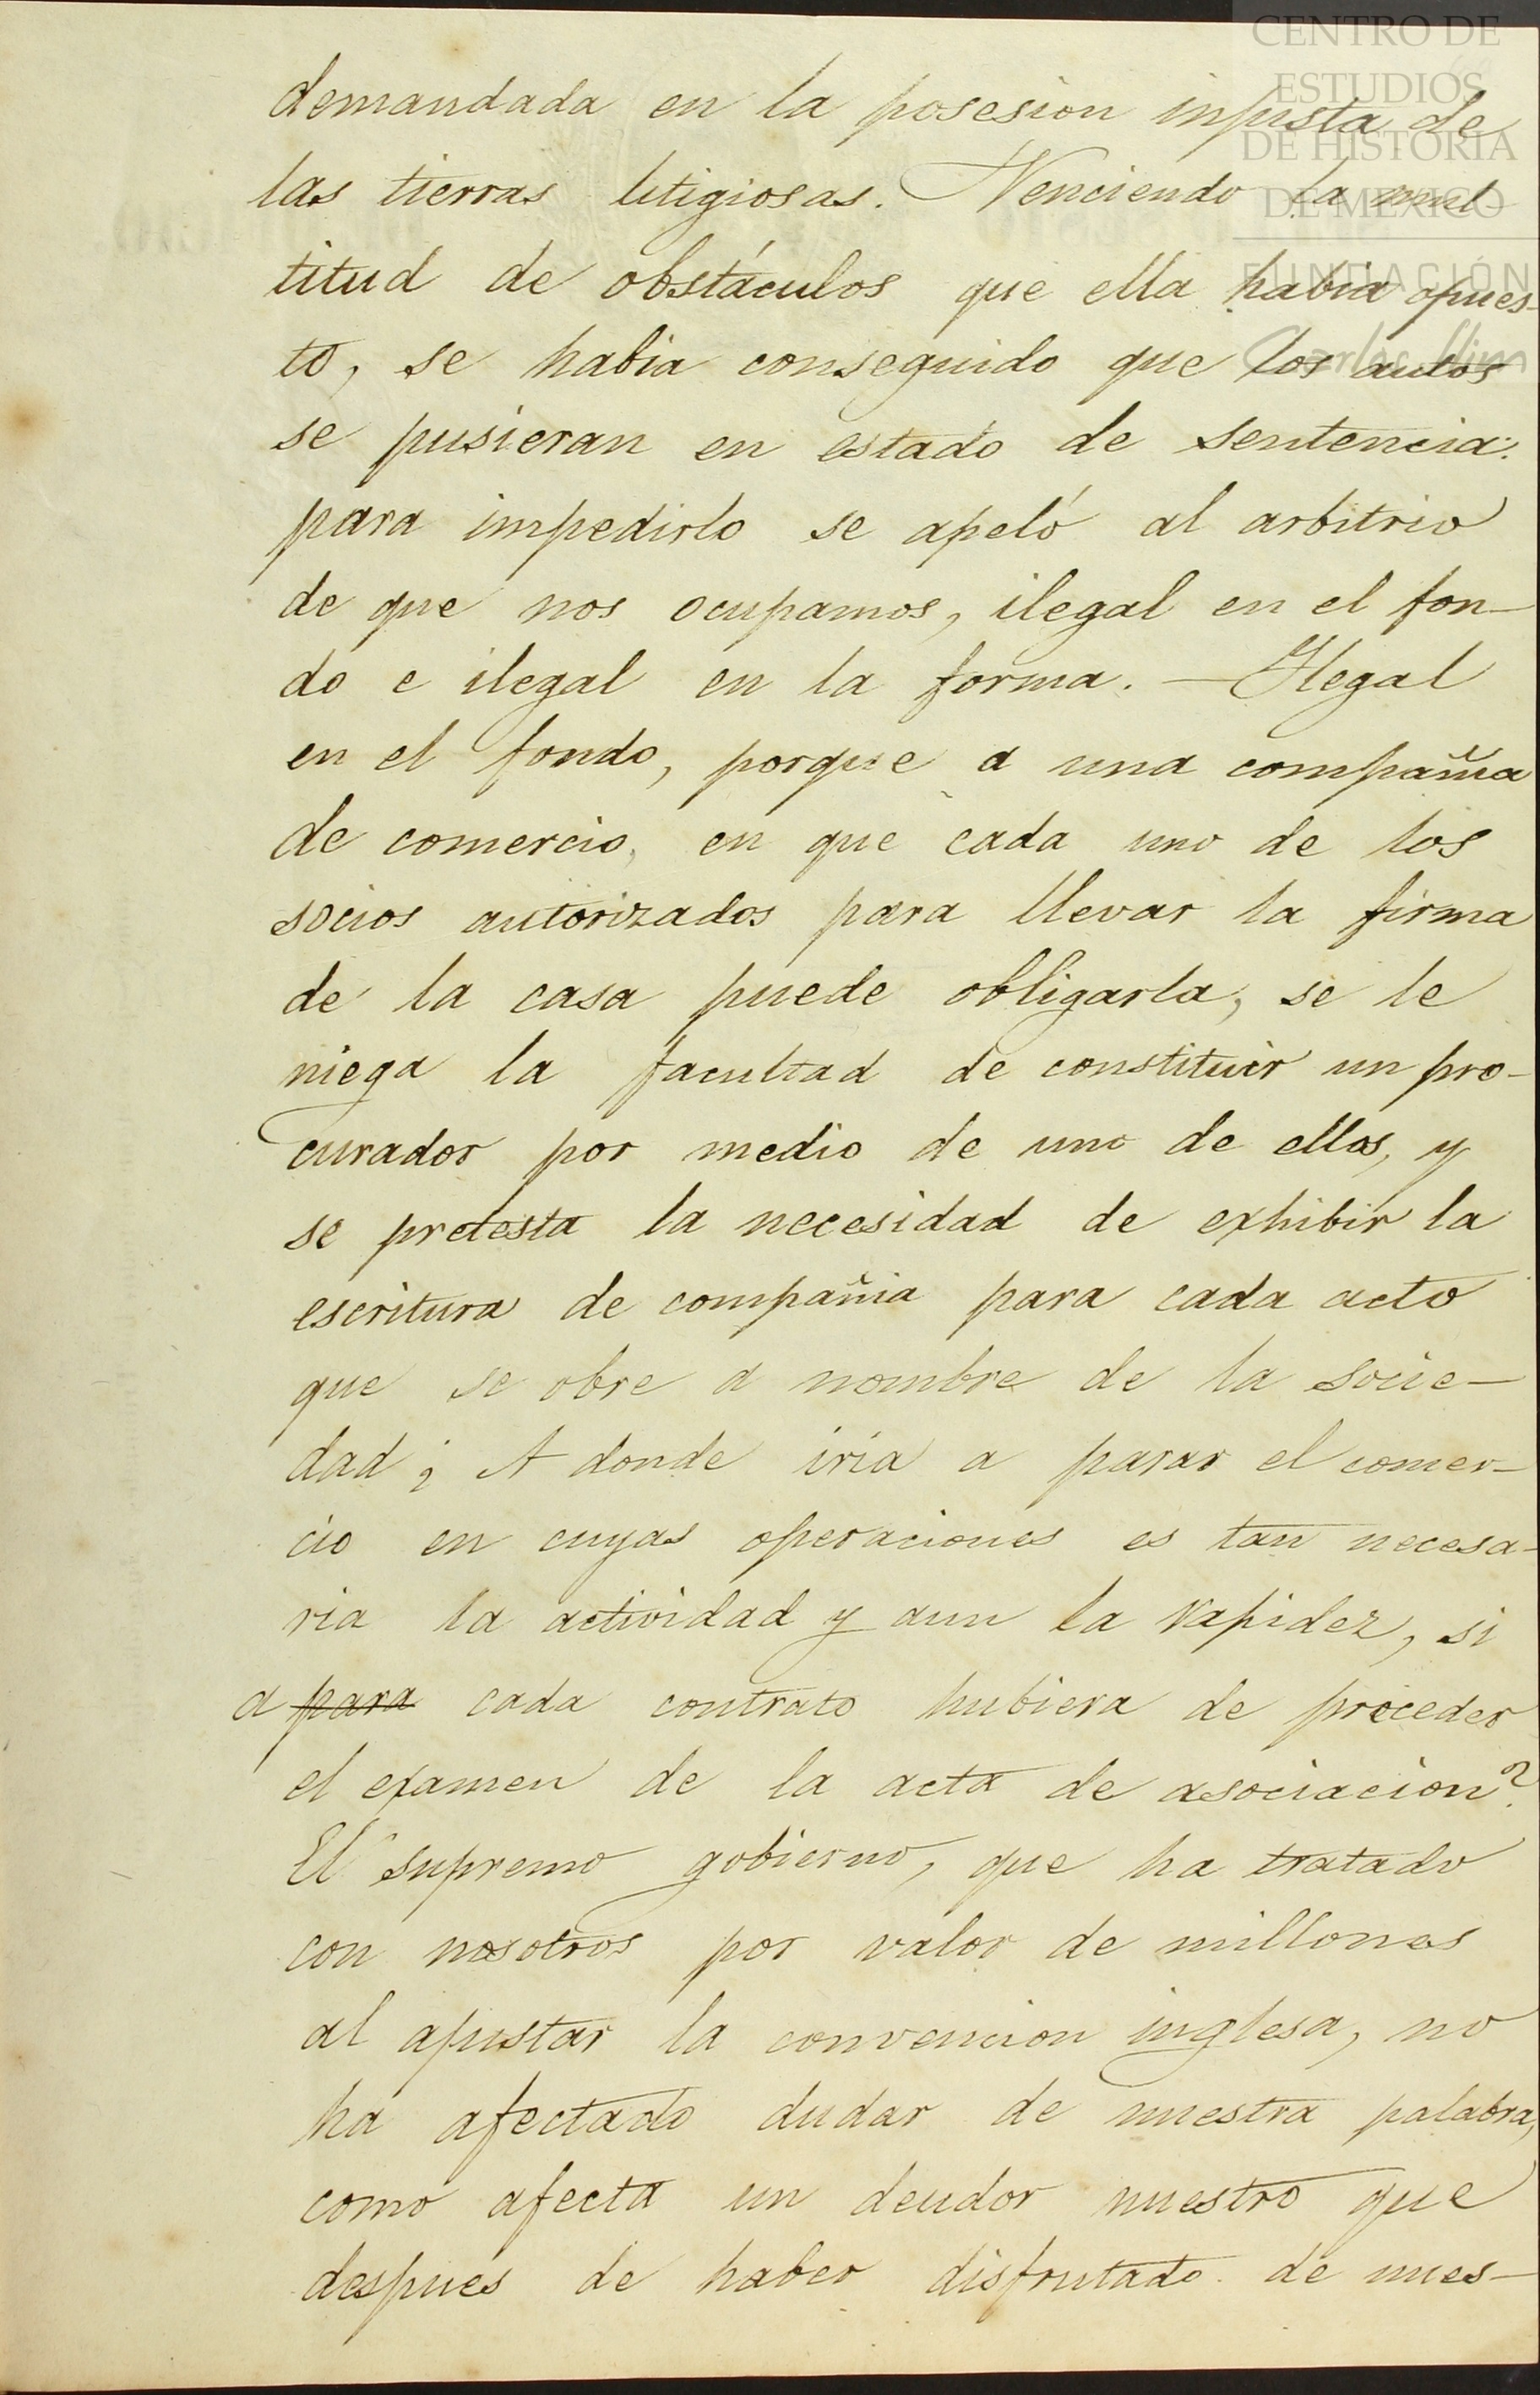 CENTRO DE
ESTUDIOS
DE HISTORIA
DE MEXICO
FUNDACIÓN
Carlos Slim
demandada en la posesion injusta de
las tierras litigiosas. Venciendo la mul-
titud de obstáculos que ella habia opues-
to, se habia conseguido que los autos
se pusieran en estado de sentencia:
para impedirlo se apeló al arbitrio
de que nos ocupamos, ilegal en el fon-
do e ilegal en la forma. — Ilegal
en el fondo, porque a una compañia
de comercio, en que cada uno de los
socios autorizados para llevar la firma
de la casa puede obligarla, se le
niega la facultad de constituir un pro-
curador por medio de uno de ellos, y
se pretesta la necesidad de exhibir la
escritura de compañia para cada acto
que se obre a nombre de la socie-
dad ¿ A donde iria a parar el comer-
cio en cuyas operaciones es tan necesa-
ria la actividad y aun la rapidez, si
a para cada contrato hubiera de proceder
el examen de la acta de asociacion?
El supremo gobierno, que ha tratado
con nosotros por valor de millones
al ajustar la convencion inglesa, no
ha afectado dudar de nuestra palabra,
como afecta un deudor nuestro que
despues de haber disfrutado de nues-